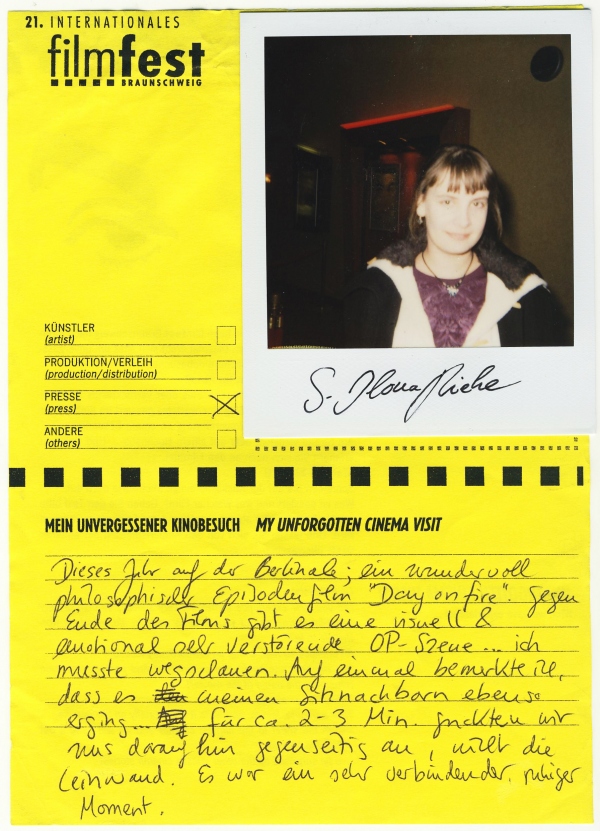 21. INTERNATIONALES
filmfest
BRAUNSCHWEIG
KÜNSTLER
(artist)
PRODUKTION/VERLEIH
(production/distribution)
PRESSE
(press)
ANDERE
(others)
S. Ilona
MEIN UNVERGESSENER KINOBESUCH MY UNFORGOTTEN CINEMA VISIT
Dieses Jahr auf der Berlinale; ein wundervoll
philosophischer Episodenfilm "Day on fire". Gegen
Ende des Films gibt es eine visuell &
emotional sehr verstörende OP-Szene... ich
musste wegschauen. Auf einmal bemerkte ich,
dass es meinem Sitznachbarn ebenso
erging... für ca. 2-3 Min. guckten wir
uns daraufhin gegenseitig an, nicht die
Leinwand. Es war ein sehr verbindender, ruhiger
Moment.